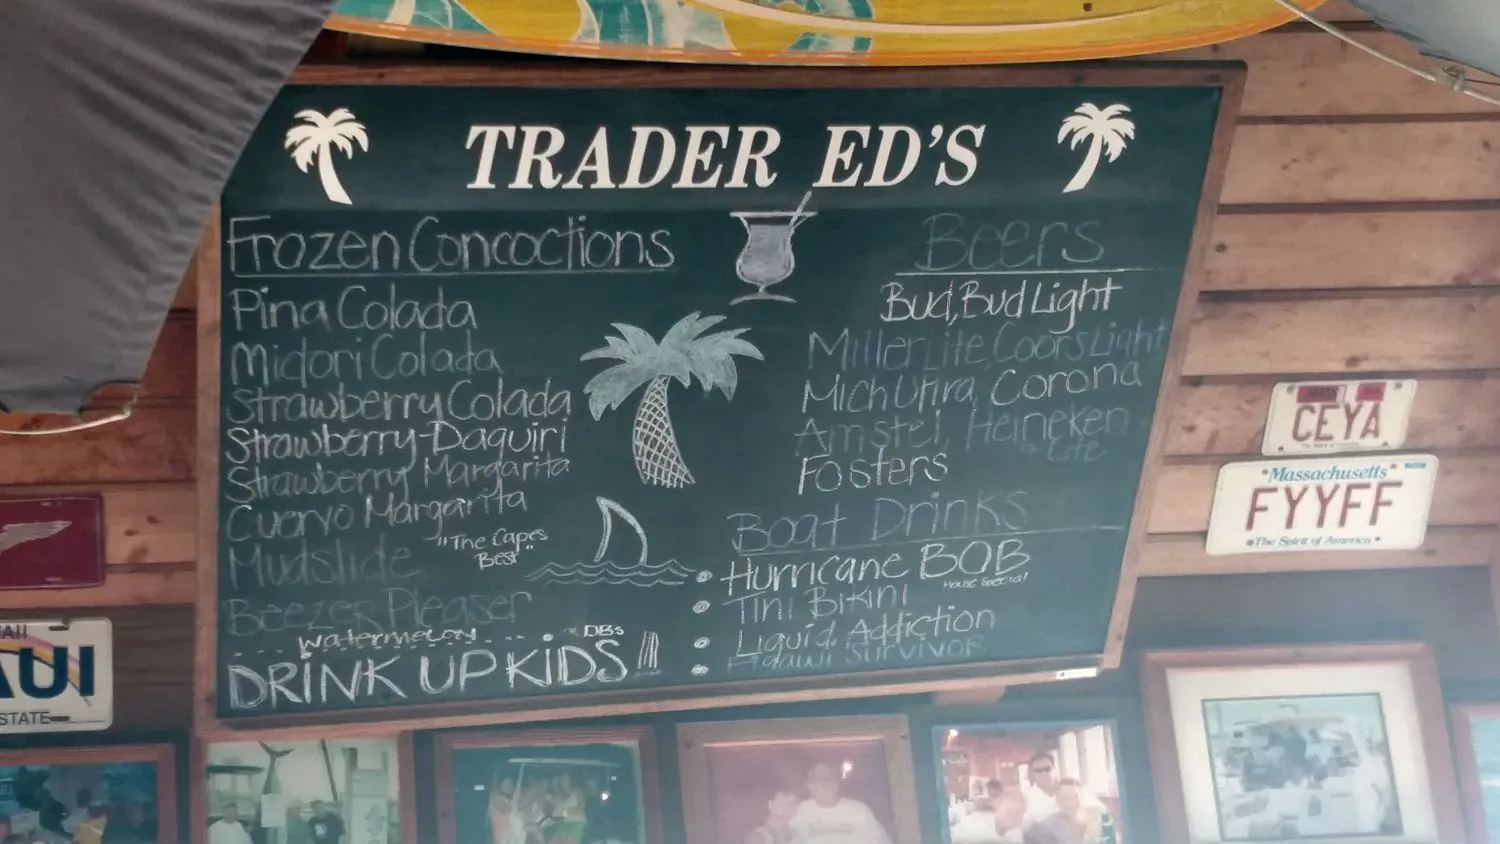 TRADER ED'S
Frozen Concoctions
Pina Colada
Midori Colada
Strawberry Colada
Strawberry Daquiri
Strawberry Margarita
Cuervo Margarita
Mudslide "The Capes
Best"
Beezes Pleaser
watermelon DBs
DRINK UP KIDS!!!
Beers
Bud, Bud Light
Miller Lite, Coors Light
Mich Ultra, Corona
Amstel, Heineken
+ Lite
Fosters
Boat Drinks
Hurricane BOB
House Special
Tini Bikini
Liquid Addiction
Survivor
CEYA
Massachusetts
FYYFF
The Spirit of America
AII
AUI
STATE